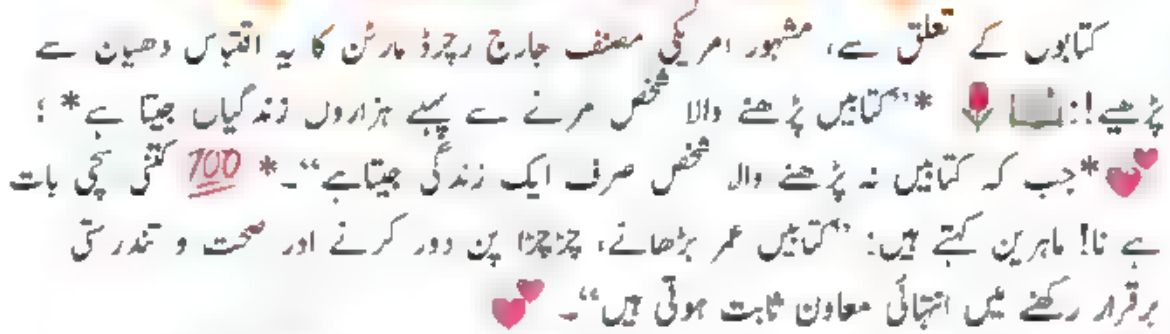 کتابوں کے تعلق سے، مشہور امریکی مصنف جارج رچرڈ مارٹن کا یہ اقتباس دھیان سے
پڑھیے!: 📖🌷 *”کتابیں پڑھنے والا شخص مرنے سے پہلے ہزاروں زندگیاں جیتا ہے* ؛
💕*جب کہ کتابیں نہ پڑھنے والا شخص صرف ایک زندگی جیتاہے“۔* 💯 کتنی سچی بات
ہے نا! ماہرین کہتے ہیں: ”کتابیں عمر بڑھانے، چڑچڑا پن دور کرنے اور صحت و تندرستی
برقرار رکھنے میں انتہائی معاون ثابت ہوتی ہیں“۔ 💕